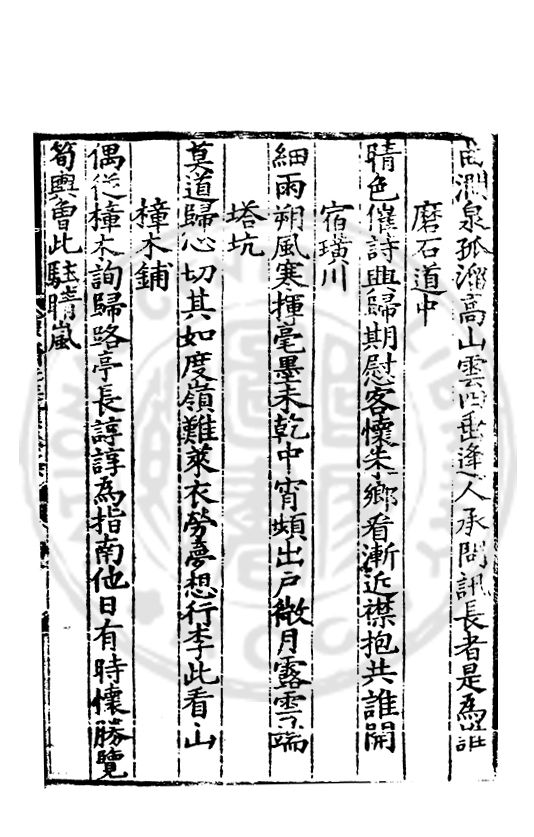 澗泉孤溜高山雲四垂逢人承問訊長者是為誰
磨石道中
晴色催詩興歸期慰客懷朱鄉看漸近襟抱共誰開
宿璜川
細雨朔風寒揮毫墨未乾中宵頻出戶微月露雲端
塔坑
莫道歸心切其如度嶺難萊衣勞夢想行李此看山
樟木鋪
偶從樟木詢歸路亭長諄諄為指南他日有時懷勝覽
筍輿曾此駐晴嵐